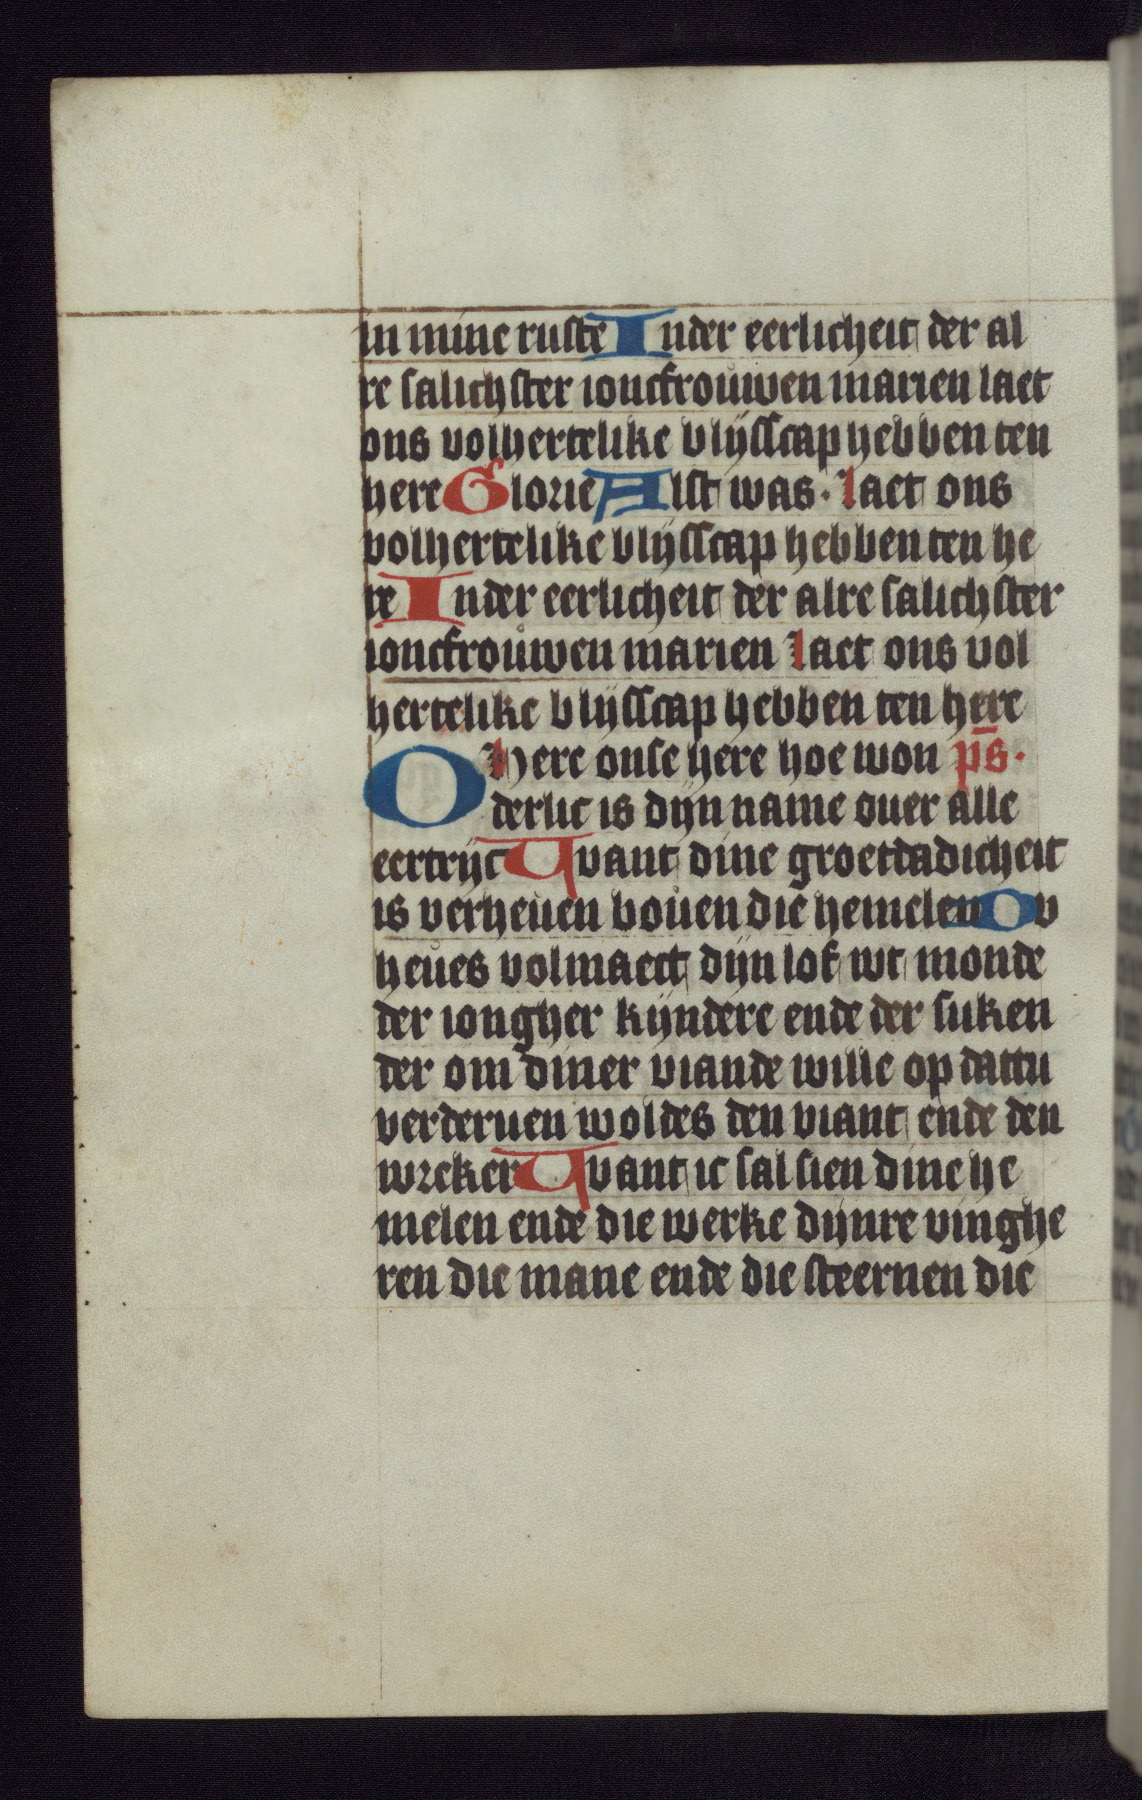 in mine ruste Inder eerlicheit der al
re salichster ioncfrouwen marien laet
ons volhertelike blijsscap hebben ten
here Glorie Alst was. laet ons
volhertelike blijsscap hebben ten he
re Inder eerlicheit der alre salichster
ioncfrouwen marien laet ons vol
hertelike blijsscap hebben ten here
O here onse here hoe won ps.
derlic is dijn name ouer alle
eertrijc Want dine groetdadicheit
is verheuen bouen die hemelen Ov
heues volmaect dijn lof wt monde
der iongher kijndere ende der suken
der om diner viande wille op dattu
verderuen woldes den viant ende den
wreker Want ic sal sien dine he
melen ende die werke dijnre vinghe
ren die mane ende die steernen die